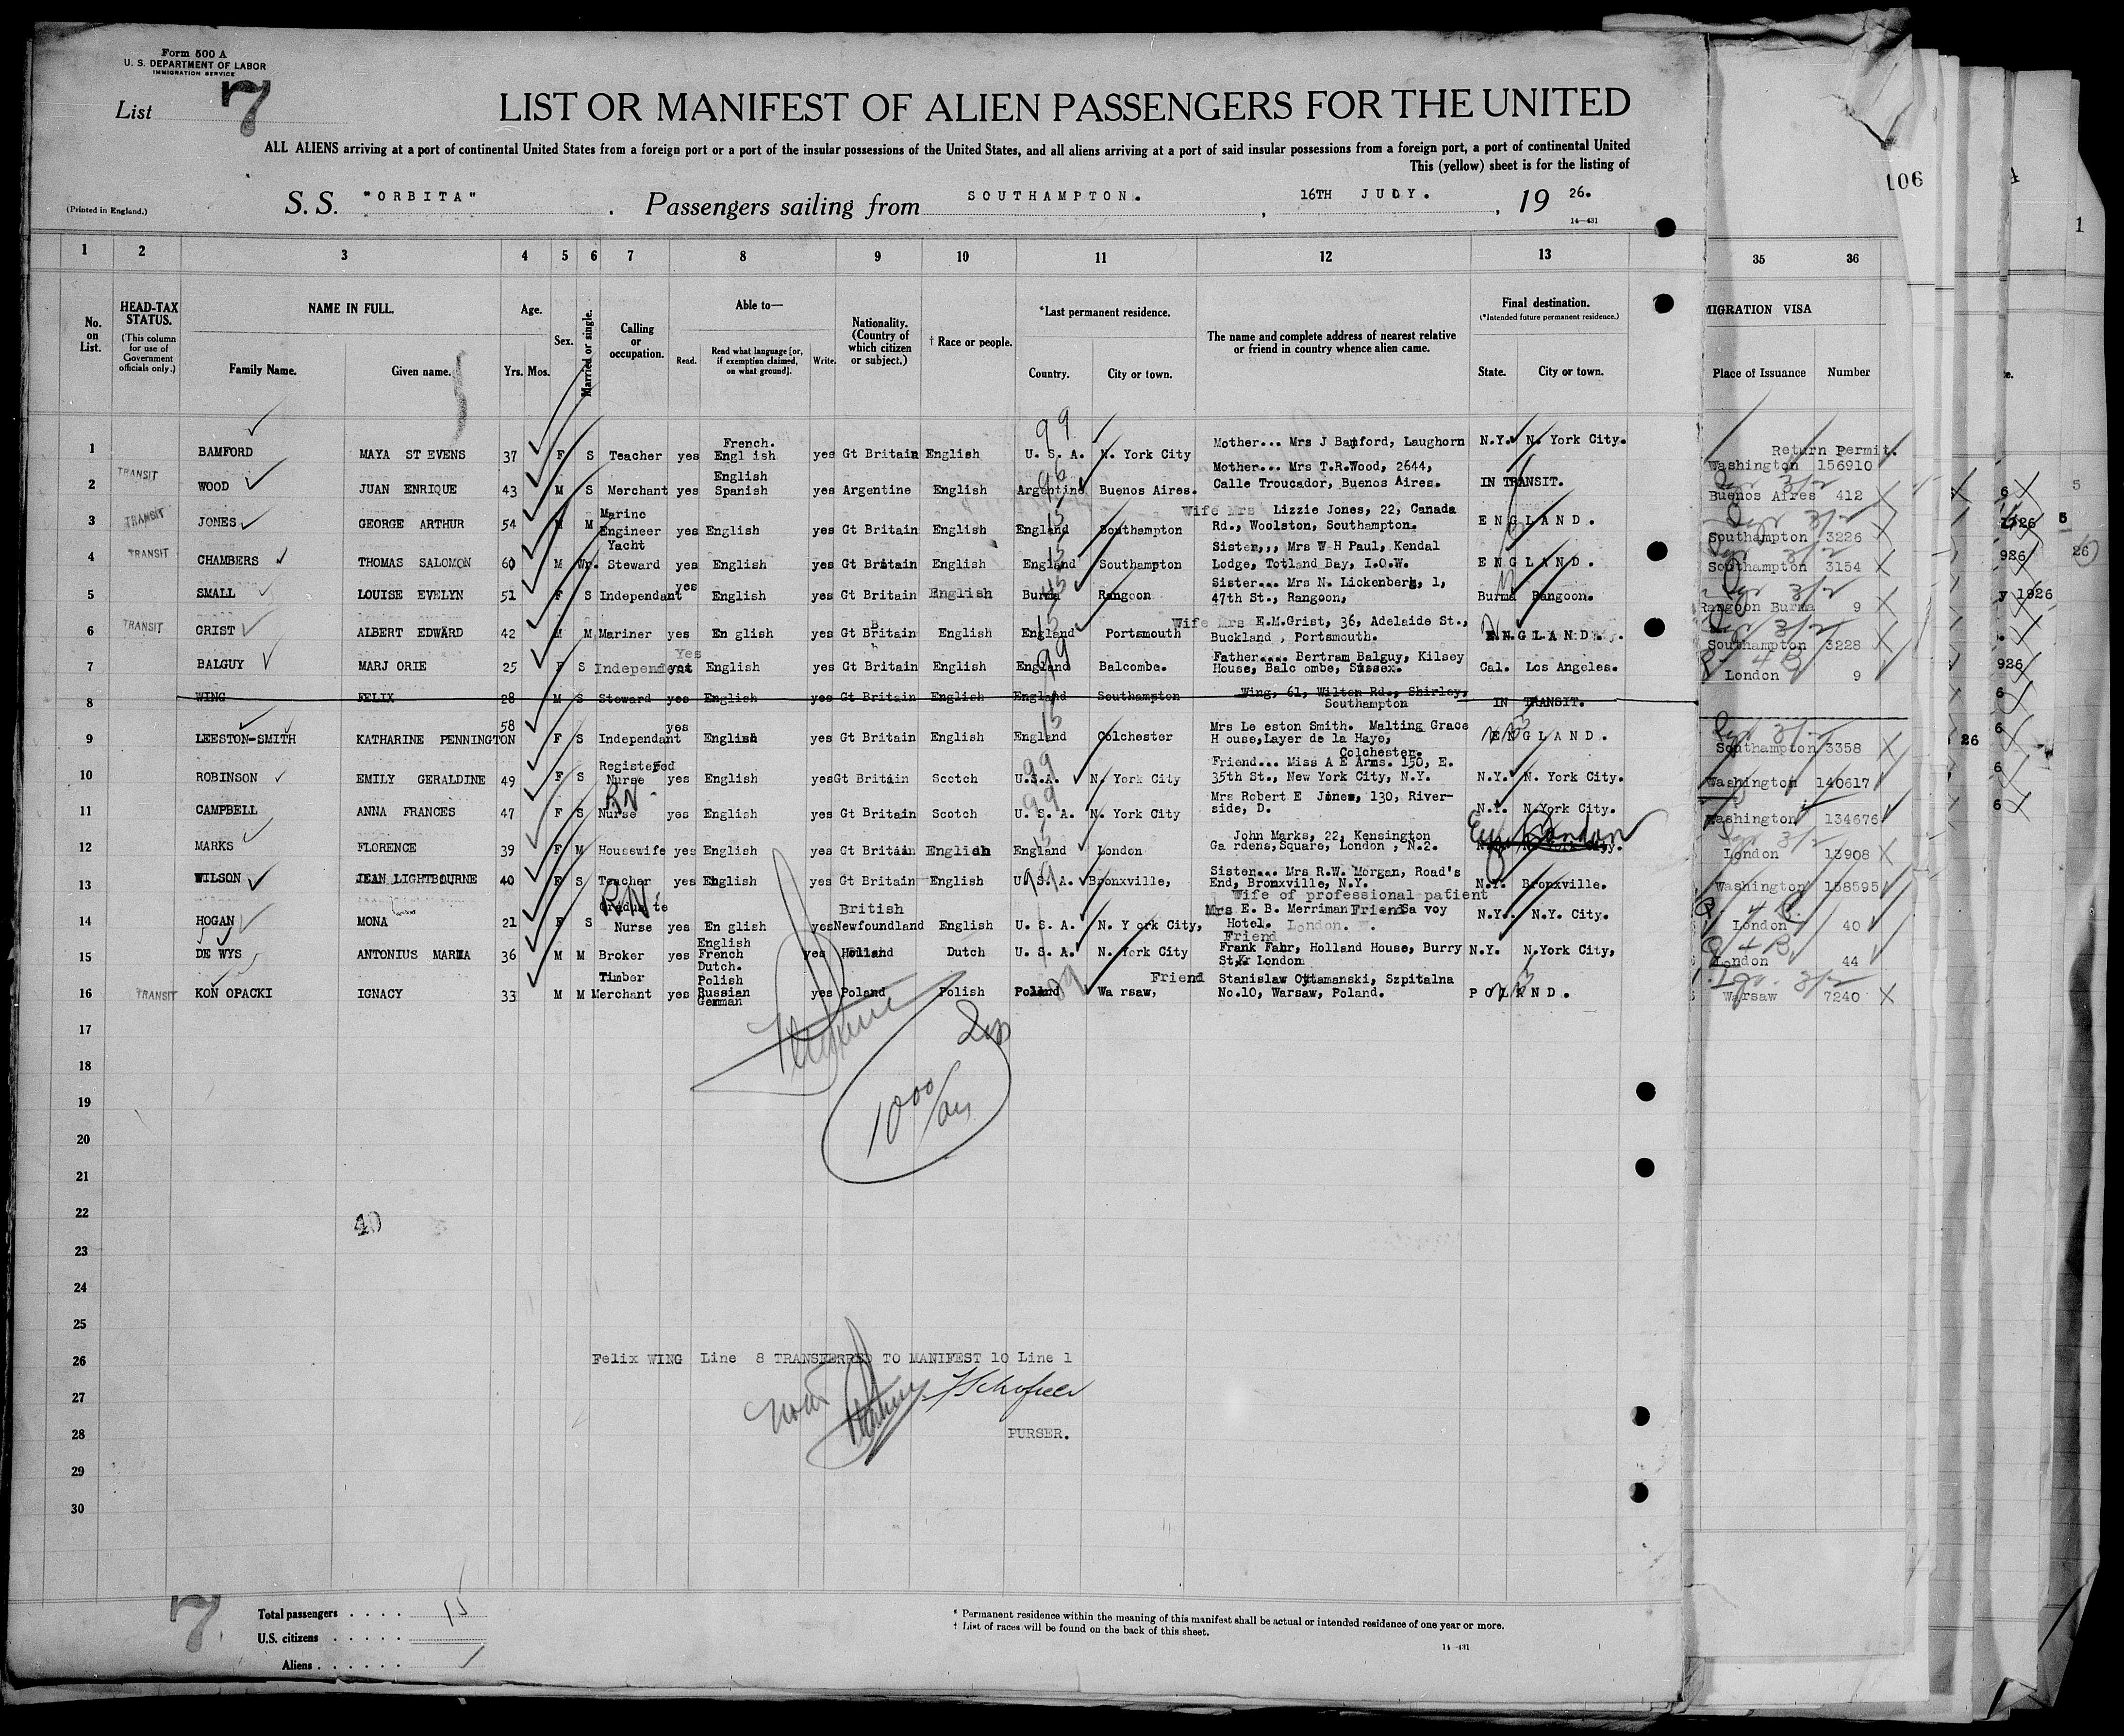 Form 500 A
U. S. DEPARTMENT OF LABOR
IMMIGRATION SERVICE
List 7
LIST OR MANIFEST OF ALIEN PASSENGERS FOR THE UNITED
ALL ALIENS arriving at a port of continental United States from a foreign port or a port of the insular possessions of the United States, and all aliens arriving at a port of said insular possessions from a foreign port, a port of continental United
This (yellow) sheet is for the listing of
106
(Printed in England.)
S. S. "ORBITA" . Passengers sailing from SOUTHAMPTON. , 16TH JULY. , 19 26.
14—431
1 2 3 4 5 6 7 8 9 10 11 12 13 35 36
No. on List.
HEAD-TAX STATUS.
(This column for use of Government officials only.)
NAME IN FULL.
Family Name. Given name.
Age.
Yrs. Mos.
Sex.
Married or single.
Calling or occupation.
Able to—
Read. Read what language [or, if exemption claimed, on what ground]. Write.
Nationality. (Country of which citizen or subject.)
† Race or people.
*Last permanent residence.
Country. City or town.
The name and complete address of nearest relative or friend in country whence alien came.
Final destination.
(*Intended future permanent residence.)
State. City or town.
MIGRATION VISA
Place of Issuance Number
1 BAMFORD MAYA STEVENS 37 F S Teacher yes French. English yes Gt Britain English U. S. A. N. York City Mother... Mrs J Bamford, Laughorn N.Y. N. York City. Return Permit. Washington 156910
2 TRANSIT WOOD JUAN ENRIQUE 43 M S Merchant yes English Spanish yes Argentine English Argentine Buenos Aires. Mother... Mrs T.R.Wood, 2644, Calle Troucador, Buenos Aires. IN TRANSIT. Buenos Aires 412
3 TRANSIT JONES GEORGE ARTHUR 54 M M Marine Engineer yes English yes Gt Britain English England Southampton Wife Mrs Lizzie Jones, 22, Canada Rd., Woolston, Southampton. ENGLAND. Southampton 3226
4 TRANSIT CHAMBERS THOMAS SALOMON 60 M Wr. Yacht Steward yes English yes Gt Britain English England Southampton Sister,,, Mrs W H Paul, Kendal Lodge, Totland Bay, I.O.W. ENGLAND. Southampton 3154
5 SMALL LOUISE EVELYN 51 F S Independant yes English yes Gt Britain English Burma Rangoon Sister... Mrs N. Lickenberg, 1, 47th St., Rangoon, Burma Rangoon. Rangoon Burma 9
6 TRANSIT GRIST ALBERT EDWARD 42 M M Mariner yes En glish yes Gt Britain English England Portsmouth Wife Mrs E.M.Grist, 36, Adelaide St., Buckland , Portsmouth. ENGLAND. Southampton 3228
7 BALGUY MARJ ORIE 25 F S Independent Yes English yes Gt Britain English England Balcombe. Father.... Bertram Balguy, Kilsey House, Balc ombe, Sussex. Cal. Los Angeles. London 9
8 WING FELIX 28 M S Steward yes English yes Gt Britain English England Southampton Wing, 61, Wilton Rd., Shirley, Southampton IN TRANSIT.
9 LEESTON-SMITH KATHARINE PENNINGTON 58 F S Independant yes English yes Gt Britain English England Colchester Mrs Le eston Smith. Malting Grace H ouse,Layer de la Hayo, Colchester. ENGLAND. Southampton 3358
10 ROBINSON EMILY GERALDINE 49 F S Registered Nurse yes English yes Gt Britain Scotch U.S.A. N. York City Friend... Miss A E Arms. 150, E. 35th St., New York City, N.Y. N.Y. N. York City. Washington 140617
11 CAMPBELL ANNA FRANCES 47 F S RN Nurse yes English yes Gt Britain Scotch U. S. A. N. York City Mrs Robert E Jones, 130, River- side, D. N.Y. N.York City. Washington 134676
12 MARKS FLORENCE 39 F M Housewife yes English yes Gt Britain English England London John Marks, 22, Kensington Ga rdens,Square, London , N.2. Eng London London 13908
13 WILSON JEAN LIGHTBOURNE 40 F S Teacher yes English yes Gt Britain English U.S.A. Bronxville, Sister... Mrs R.W. Morgan, Road's End, Bronxville, N.Y. N.Y. Bronxville. Washington 158595
14 HOGAN MONA 21 F S RN Graduate Nurse yes En glish yes British Newfoundland English U. S. A. N. Y ork City, Wife of professional patient Mrs E. B. Merriman Friend Sa voy Hotel. London. W. N.Y. N.Y. City. London 40
15 DE WYS ANTONIUS MARIA 36 M M Broker yes English French Dutch. yes Holland Dutch U. S. A. N. York City Friend Frank Fahr, Holland House, Burry St, London N.Y. N.York City, London 44
16 TRANSIT KON OPACKI IGNACY 33 M M Timber Merchant yes Polish Russian German yes Poland Polish Poland Wa rsaw, Friend Stanislaw Ottamanski, Szpitalna No.10, Warsaw, Poland. POLAND. Warsaw 7240
17
18
19
20
21
22
23
24
25
26 Felix WING Line 8 TRANSFERRED TO MANIFEST 10 Line 1
27
28 PURSER.
29
30
40
7
Total passengers . . . . 15
U.S. citizens . . . . .
Aliens . . . . . .
* Permanent residence within the meaning of this manifest shall be actual or intended residence of one year or more.
† List of races will be found on the back of this sheet.
14—431